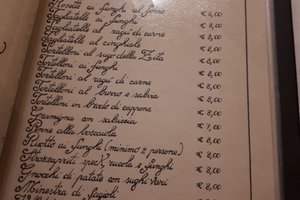 Rosette ai funghi al forno € 8,00
Tagliatelle ai funghi € 8,00
Tagliatelle al ragù di carne € 8,00
Tagliatelle al cinghiale € 8,00
Tortelloni al sugo della Zita € 8,00
Tortelloni ai funghi € 8,00
Tortelloni al ragù di carne € 8,00
Tortelloni al burro e salvia € 8,00
Tortellini in brodo di cappone € 8,00
Gramigna con salsiccia € 7,00
Penne alla boscaiola € 8,00
Risotto ai funghi (minimo 2 persone) € 8,00
Strozzapreti speck, rucola e funghi € 8,00
Gnocchi di patate con sughi vari € 8,00
Minestra di fagioli